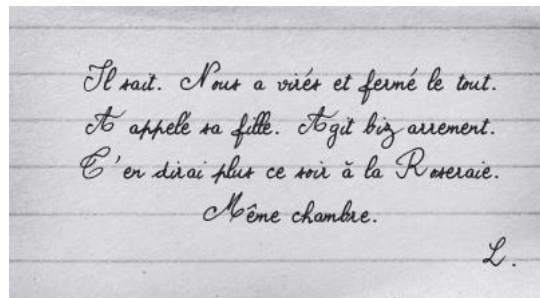 Il sait. Nous a virés et fermé le tout.
A appelé sa fille. Agit biz arrement.
T'en dirai plus ce soir à la Roseraie.
Même chambre.
L.